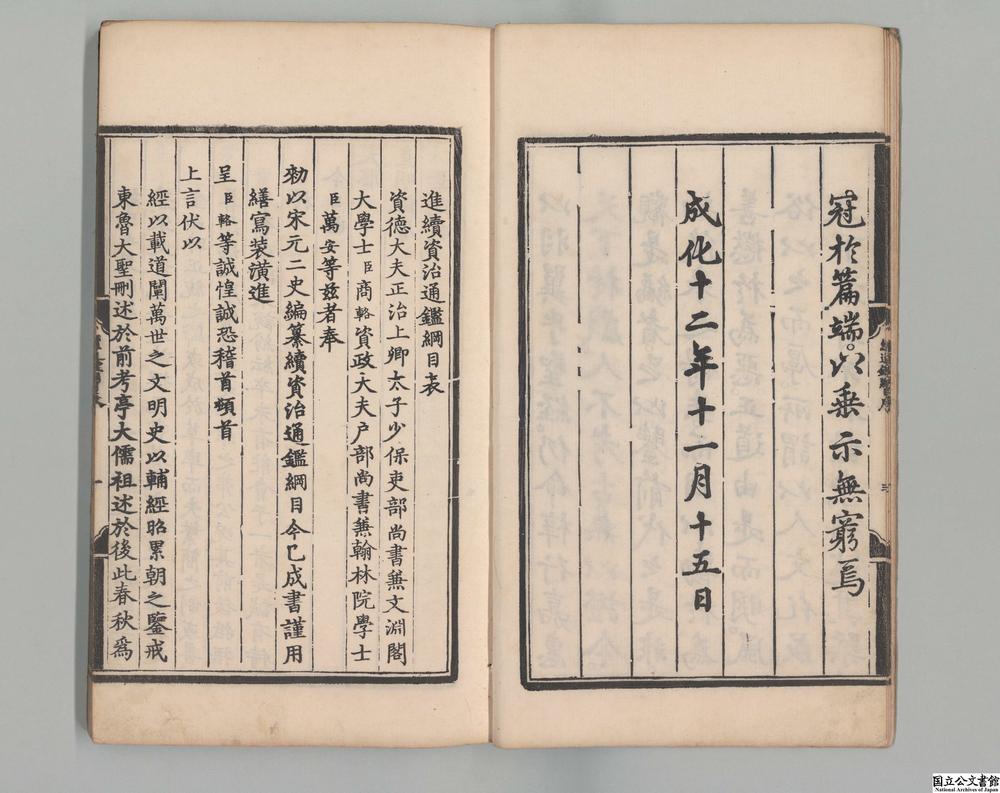 冠於篇端。以垂示無窮焉
成化十二年十一月十五日
進續資治通鑑綱目表
資德大夫正治上卿太子少保吏部尚書兼文淵閣
大學士臣商輅資政大夫户部尚書兼翰林院學士
臣萬安等兹者奉
勑以宋元二史編纂續資治通鑑綱目今已成書謹用
繕寫装潢進
呈臣輅等誠惶誠恐稽首頓首
上言伏以
經以載道闡萬世之文明史以輔經昭累朝之鑒戒
東魯大聖刪述於前考亭大儒祖述於後此春秋爲
国立公文書館
National Archives of Japan